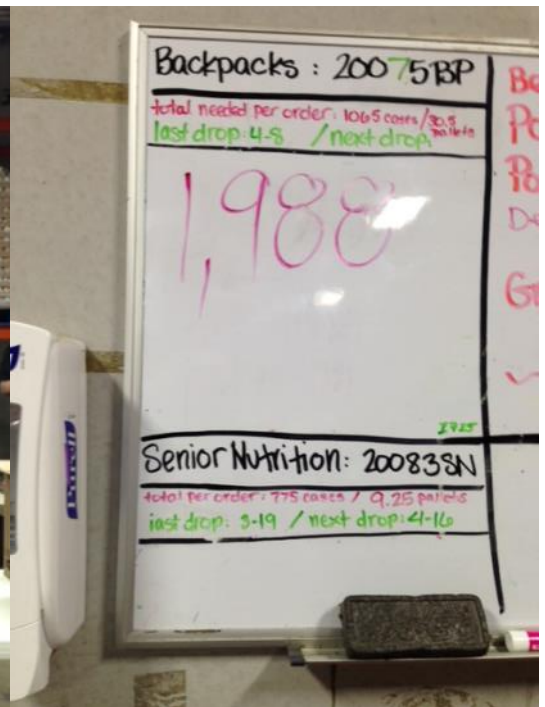 Backpacks : 20075BP
total needed per order: 1065 cases / 30.5 pallets
last drop: 4-8 / next drop:
1,988
Senior Nutrition: 20083SN
total per order: 775 cases / 9.25 pallets
last drop: 3-19 / next drop: 4-16
Purell